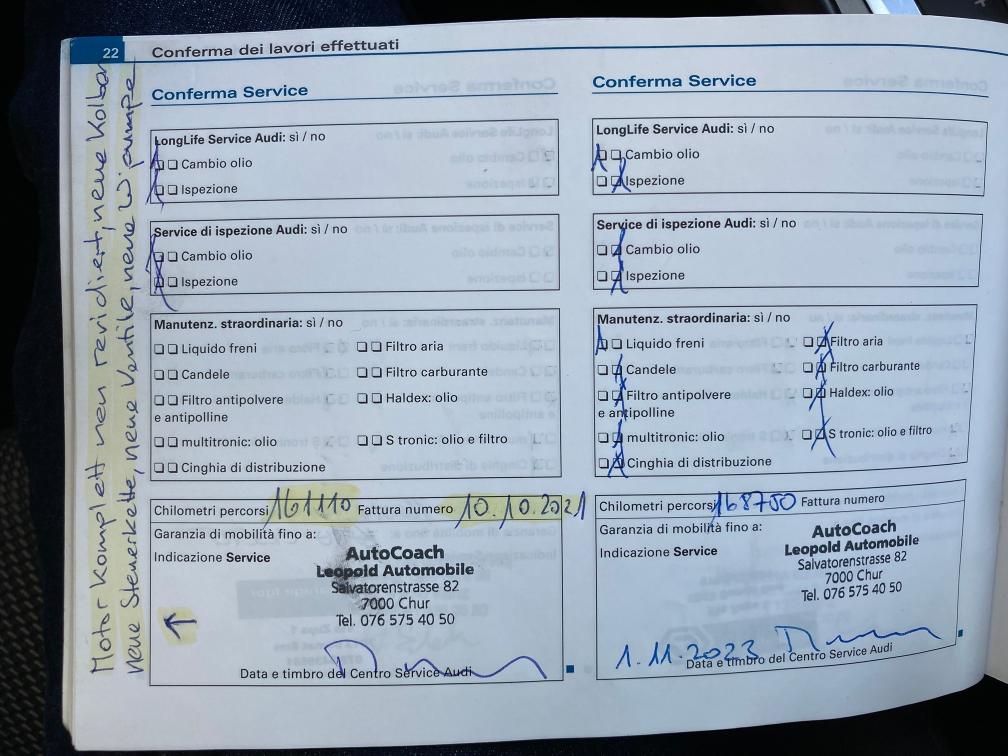 22 Conferma dei lavori effettuati
Motor komplett neu revidiert, neue Kolben
neue Steuerkette, neue Ventile, neue W'pumpe
Conferma Service
LongLife Service Audi: sì / no
Cambio olio
Ispezione
Service di ispezione Audi: sì / no
Cambio olio
Ispezione
Manutenz. straordinaria: sì / no
Liquido freni Filtro aria
Candele Filtro carburante
Filtro antipolvere Haldex: olio
e antipolline
multitronic: olio S tronic: olio e filtro
Cinghia di distribuzione
Chilometri percorsi 161110 Fattura numero 10.10.2021
Garanzia di mobilità fino a:
Indicazione Service
AutoCoach
Leopold Automobile
Salvatorenstrasse 82
7000 Chur
Tel. 076 575 40 50
Data e timbro del Centro Service Audi
Conferma Service
LongLife Service Audi: sì / no
Cambio olio
Ispezione
Service di ispezione Audi: sì / no
Cambio olio
Ispezione
Manutenz. straordinaria: sì / no
Liquido freni Filtro aria
Candele Filtro carburante
Filtro antipolvere Haldex: olio
e antipolline
multitronic: olio S tronic: olio e filtro
Cinghia di distribuzione
Chilometri percorsi 168750 Fattura numero
Garanzia di mobilità fino a:
Indicazione Service
AutoCoach
Leopold Automobile
Salvatorenstrasse 82
7000 Chur
Tel. 076 575 40 50
1.11.2023
Data e timbro del Centro Service Audi